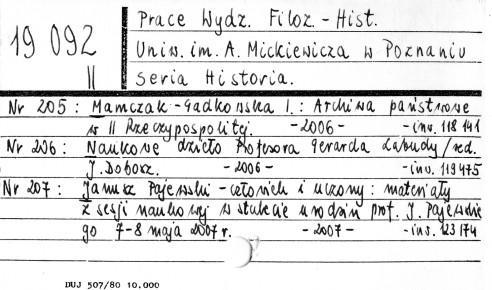 19 092
II
Prace Wydz. Filoz. - Hist.
Uniw. im. A. Mickiewicza w Poznaniu
Seria Historia.
Nr 205 : Mamczak-Gadkowska I. : Archiwa państwowe
w II Rzeczypospolitej. - 2006 - - inw. 118 141
Nr 206 : Naukowe dzieło Profesora Gerarda Labudy / red.
J. Dobosz. - 2006 - - inw. 119475
Nr 207 : Janusz Pajewski - człowiek i uczony : materiały
z sesji naukowej w stulecie urodzin prof. J. Pajewskie
go 7-8 maja 2007 r. - 2007 - - inw. 123 174
DUJ 507/80 10.000